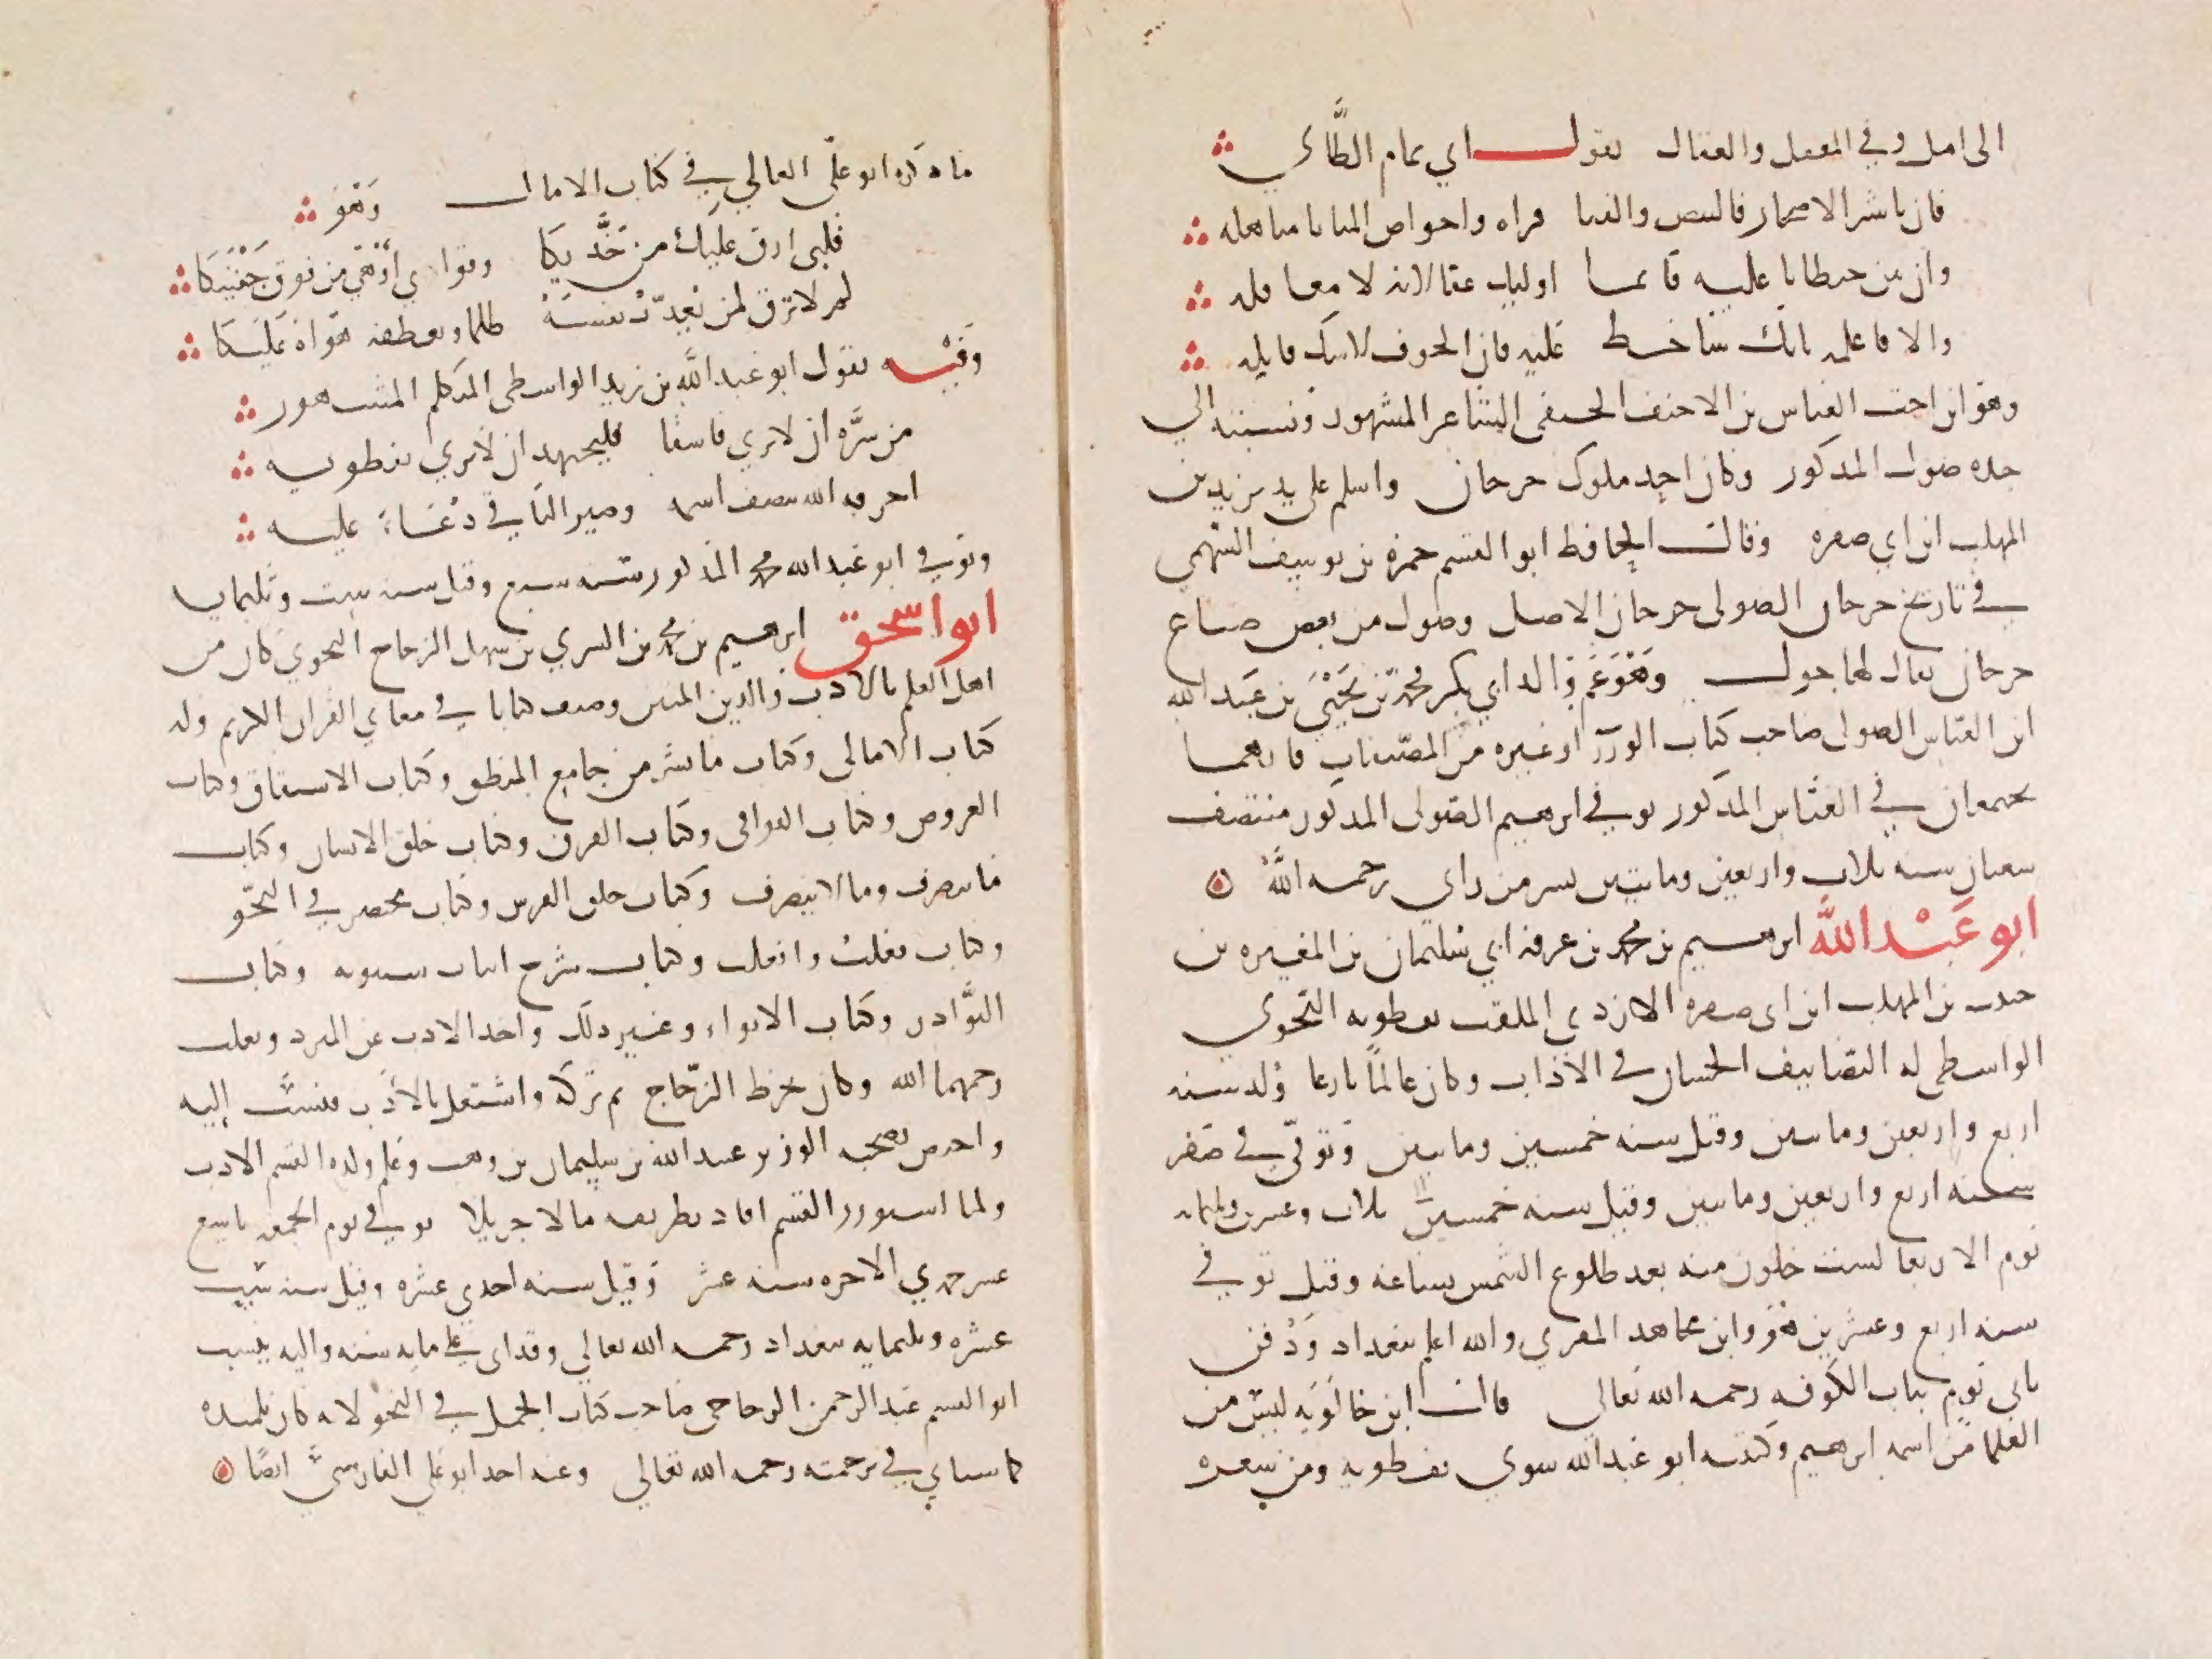 الى امل وفي المعقل والعقال بقول ابي تمام الطائي
فان باشر الاصحار فالبيض والقنا قراه واحواض المنايا مناهله
وان يبن حيطانا عليه فانما اوليك عقالاته لا معاقله
والا فاعلمه بانك ساخط عليه فان الخوف لا شك قاتله
وهو ابن اخت العباس بن الاحنف الحنفي الشاعر المشهور ونسبته الي
جده صول المذكور وكان احد ملوك جرجان واسلم على يد يزيد بن
المهلب ابن ابي صفره وقال الحافظ ابو القسم حمزه بن يوسف السهمي
في تاريخ جرجان الصولى جرجان الاصل وصول من بعض ضياع
جرجان يقال لها جول وهو عم والد ابي بكر محمد بن يحيى بن عبد الله
ابن العباس الصولى صاحب كتاب الوزرا وغيره من المصنفات فانهما
يجتمعان في العباس المذكور توفي ابرهيم الصولى المذكور منتصف
شعبان سنه ثلاث واربعين ومايتين بسر من راي رحمه الله
ابو عبد الله ابرهيم بن محمد بن عرفه ابن سليمان بن المغيره بن
حبيب بن المهلب ابن ابى صفره الازدي الملقب نفطويه النحوي
الواسطى له التصانيف الحسان في الاداب وكان عالما بارعا ولد سنه
اربع واربعين ومايتين وقيل سنه خمسين ومايتين وتوفى في صفر
سنه اربع واربعين ومايتين وقيل سنه خمسين ثلاث وعشرين وثلثمايه
يوم الاربعا لست خلون منه بعد طلوع الشمس بساعه وقيل توفي
سنه اربع وعشرين هو وابن مجاهد المقري والله اعلم ببغداد ودفن
ثاني يوم بباب الكوفه رحمه الله تعالى قال ابن خالويه ليس من
العلما من اسمه ابرهيم وكنيته ابو عبد الله سوي نفطويه ومن شعره
ما ذكره ابو علي القالي في كتاب الامال وهو
قلبي ارق عليك من خديكا وقواي اوهى من قوي جفنيكا
لم لا ترق لمن يعذب نفسه ظلما ويعطفه هواه عليكا
وفيه يقول ابو عبد الله بن زيد الواسطى المتكلم المشهور
من سره ان لا يري فاسقا فليجتهد ان لا يري نفطويه
احرقه الله بنصف اسمه وصير الباقي دعاء عليه
وتوفي ابو عبد الله محمد المذكور سنه سبع وقيل سنه ست وثلثمايه
ابو اسحق ابرهيم بن محمد بن السري بن سهل الزجاج النحوي كان من
اهل العلم بالادب والدين المتين وصنف كتابا في معاني القران الكريم وله
كتاب الامالى وكتاب ما فسر من جامع المنطق وكتاب الاشتقاق وكتاب
العروض وكتاب القوافى وكتاب الفرق وكتاب خلق الانسان وكتاب
ما ينصرف وما لا ينصرف وكتاب خلق الفرس وكتاب مختصر في النحو
وكتاب فعلت وافعلت وكتاب شرح ابيات سيبويه وكتاب
النوادر وكتاب الانواء وغير ذلك واخذ الادب عن المبرد وثعلب
رحمهما الله وكان يخرط الزجاج ثم تركه واشتغل بالادب فنسب إليه
واختص بصحبه الوزير عبد الله بن سليمان بن وهب وعلم ولده القسم الادب
ولما استوزر القسم افاد بطريقه مالا جزيلا توفي يوم الجمعه تاسع
عشر جمدي الاخره سنه عشر وقيل سنه احدي عشره وقيل سنه ست
عشره وثلثمايه ببغداد رحمه الله تعالي وقد اناف على مايه سنه واليه ينسب
ابو القسم عبد الرحمن الزجاجي صاحب كتاب الجمل في النحو لانه كان تلميذه
كما سياتي في ترجمته رحمه الله تعالي وعنه اخذ ابو علي الفارسي ايضا